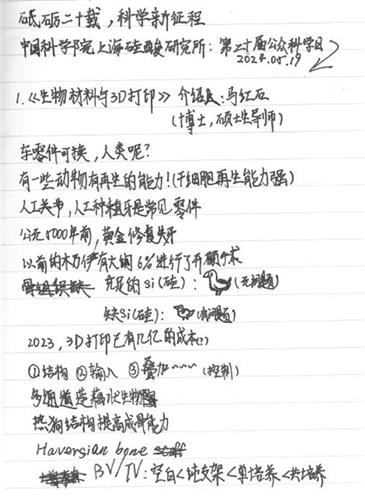 砥砺二十载，科学新征程
中国科学院上海硅酸盐研究所：第二十届公众科学日
2024.05.19
1.《生物材料与3D打印》 介绍人：马红石
(博士，硕士生导师)
车零件可换，人类呢？
有一些动物有再生的能力！(干细胞再生能力强)
人工关节，人工种植牙是常见零件
公元5000年前，黄金修复失牙
以前的木乃伊有大概6%进行了开颅手术
充足的si(硅)： (无问题)
缺si(硅)： (有问题)
2023，3D打印已有几亿的成本(?)
①结构 ②输入 ③叠加~~~ (控制)
多通道莲藕状生物
热狗结构提高成骨能力
Haversian bone
BV/TV：空白<纯支架<单培养<共培养